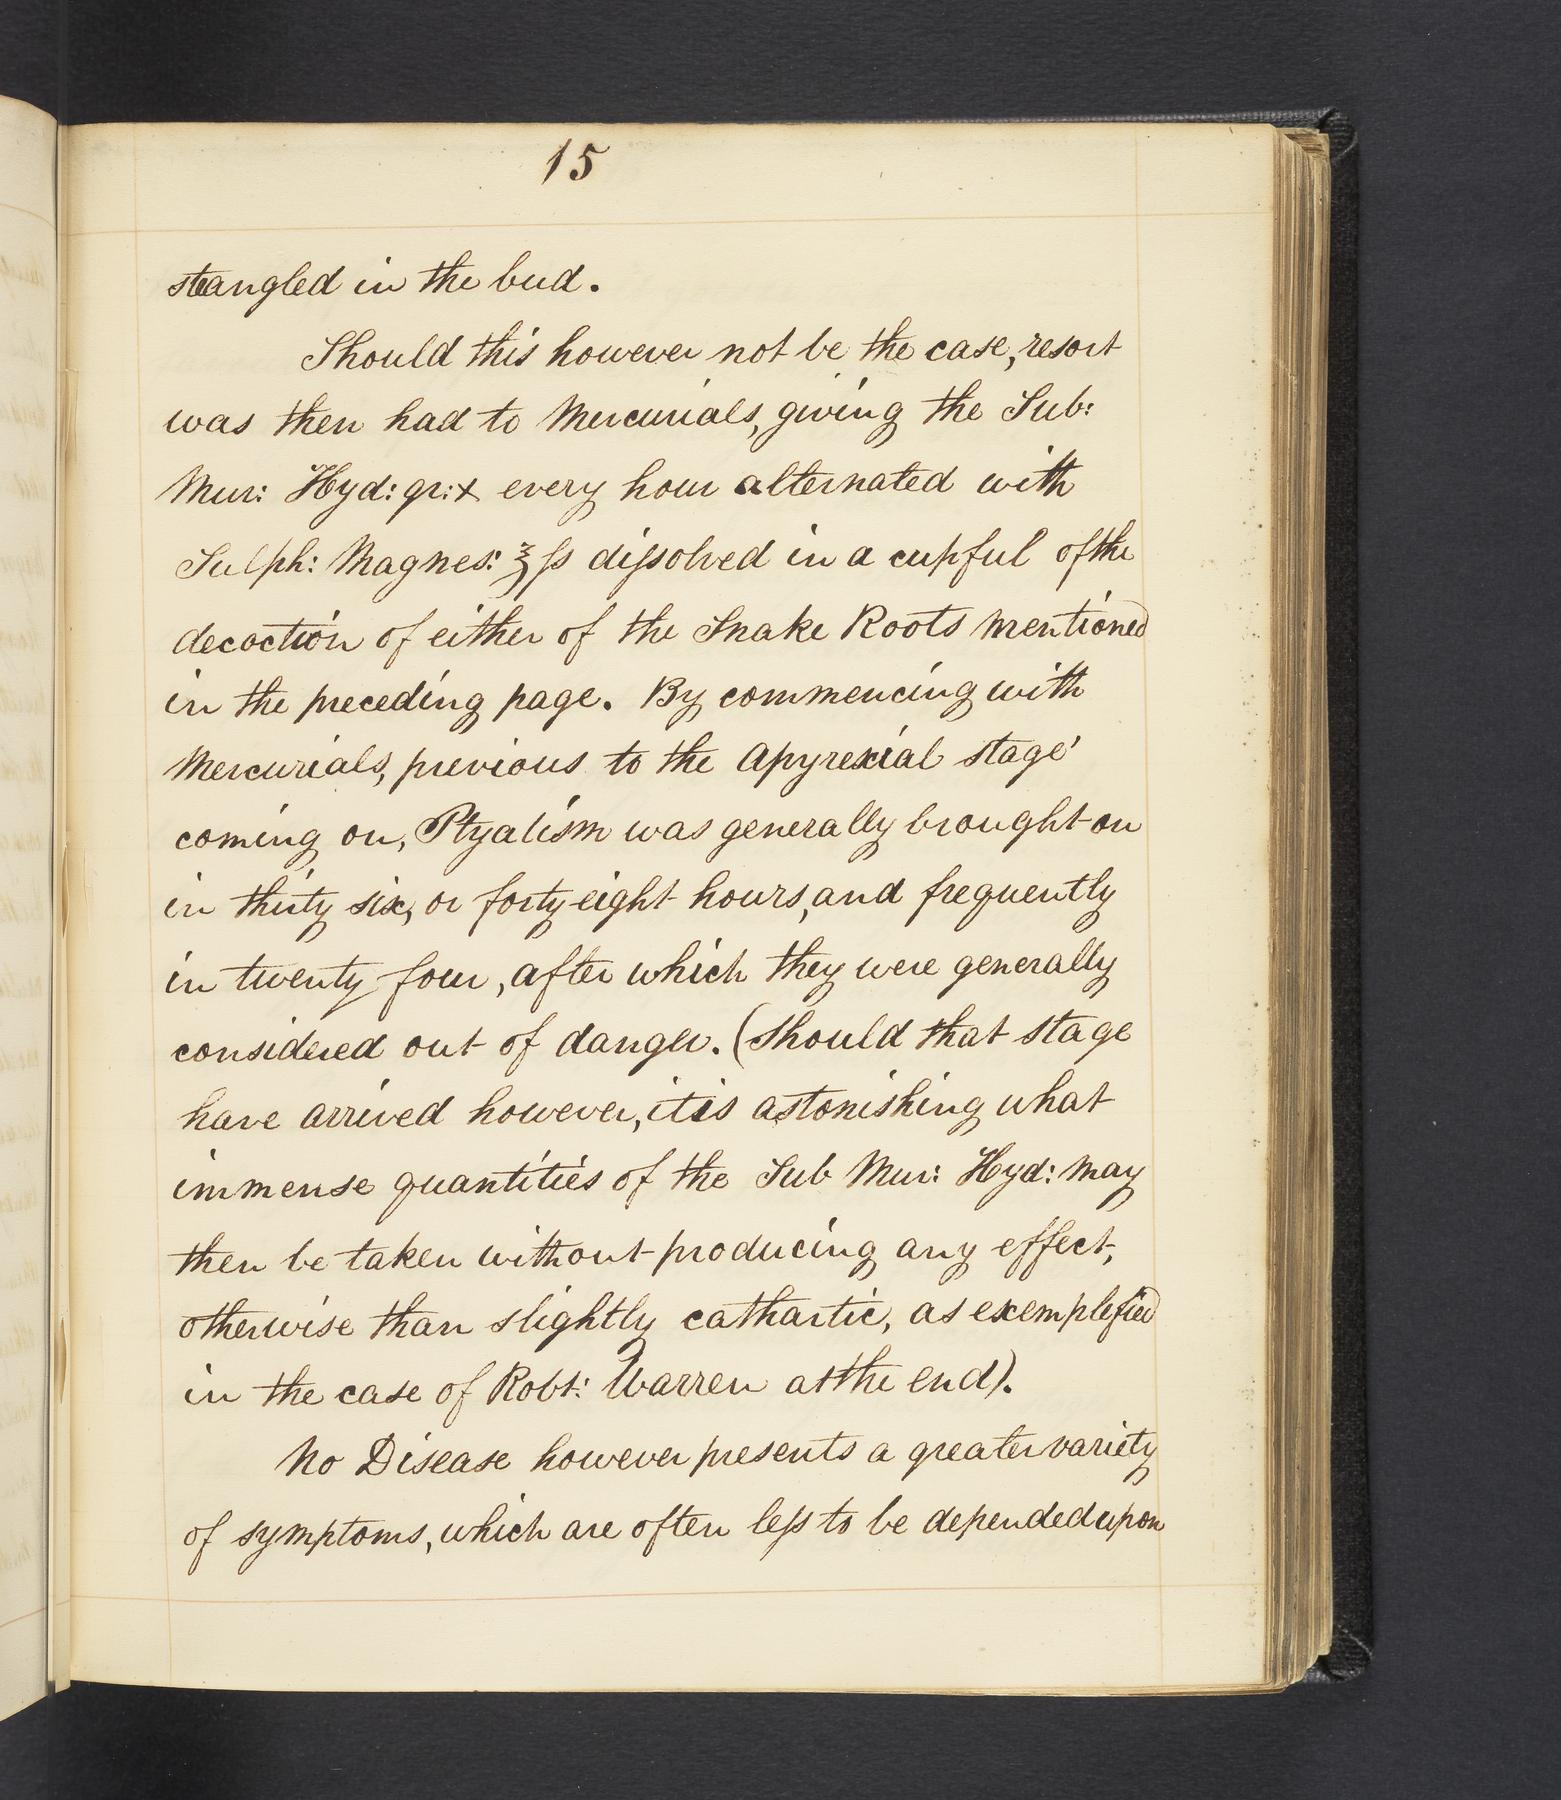 15
strangled in the bud.
Should this however not be the case, resort
was then had to Mercurials, giving the Sub:
Mur: Hyd: gr: x every hour alternated with
Sulph: Magnes: ℥ſs diſsolved in a cupful of the
decoction of either of the Snake Roots mentioned
in the preceding page. By commencing with
Mercurials, previous to the Apyrexial stage
coming on, Ptyalism was generally brought on
in thirty six, or forty eight hours, and frequently
in twenty four, after which they were generally
considered out of danger. (Should that stage
have arrived however, it is astonishing what
immense quantities of the Sub Mur: Hyd: may
then be taken without producing any effect,
otherwise than slightly cathartic, as exemplified
in the case of Robt: Warren at the end).
No Disease however presents a greater variety
of symptoms, which are often leſs to be depended upon